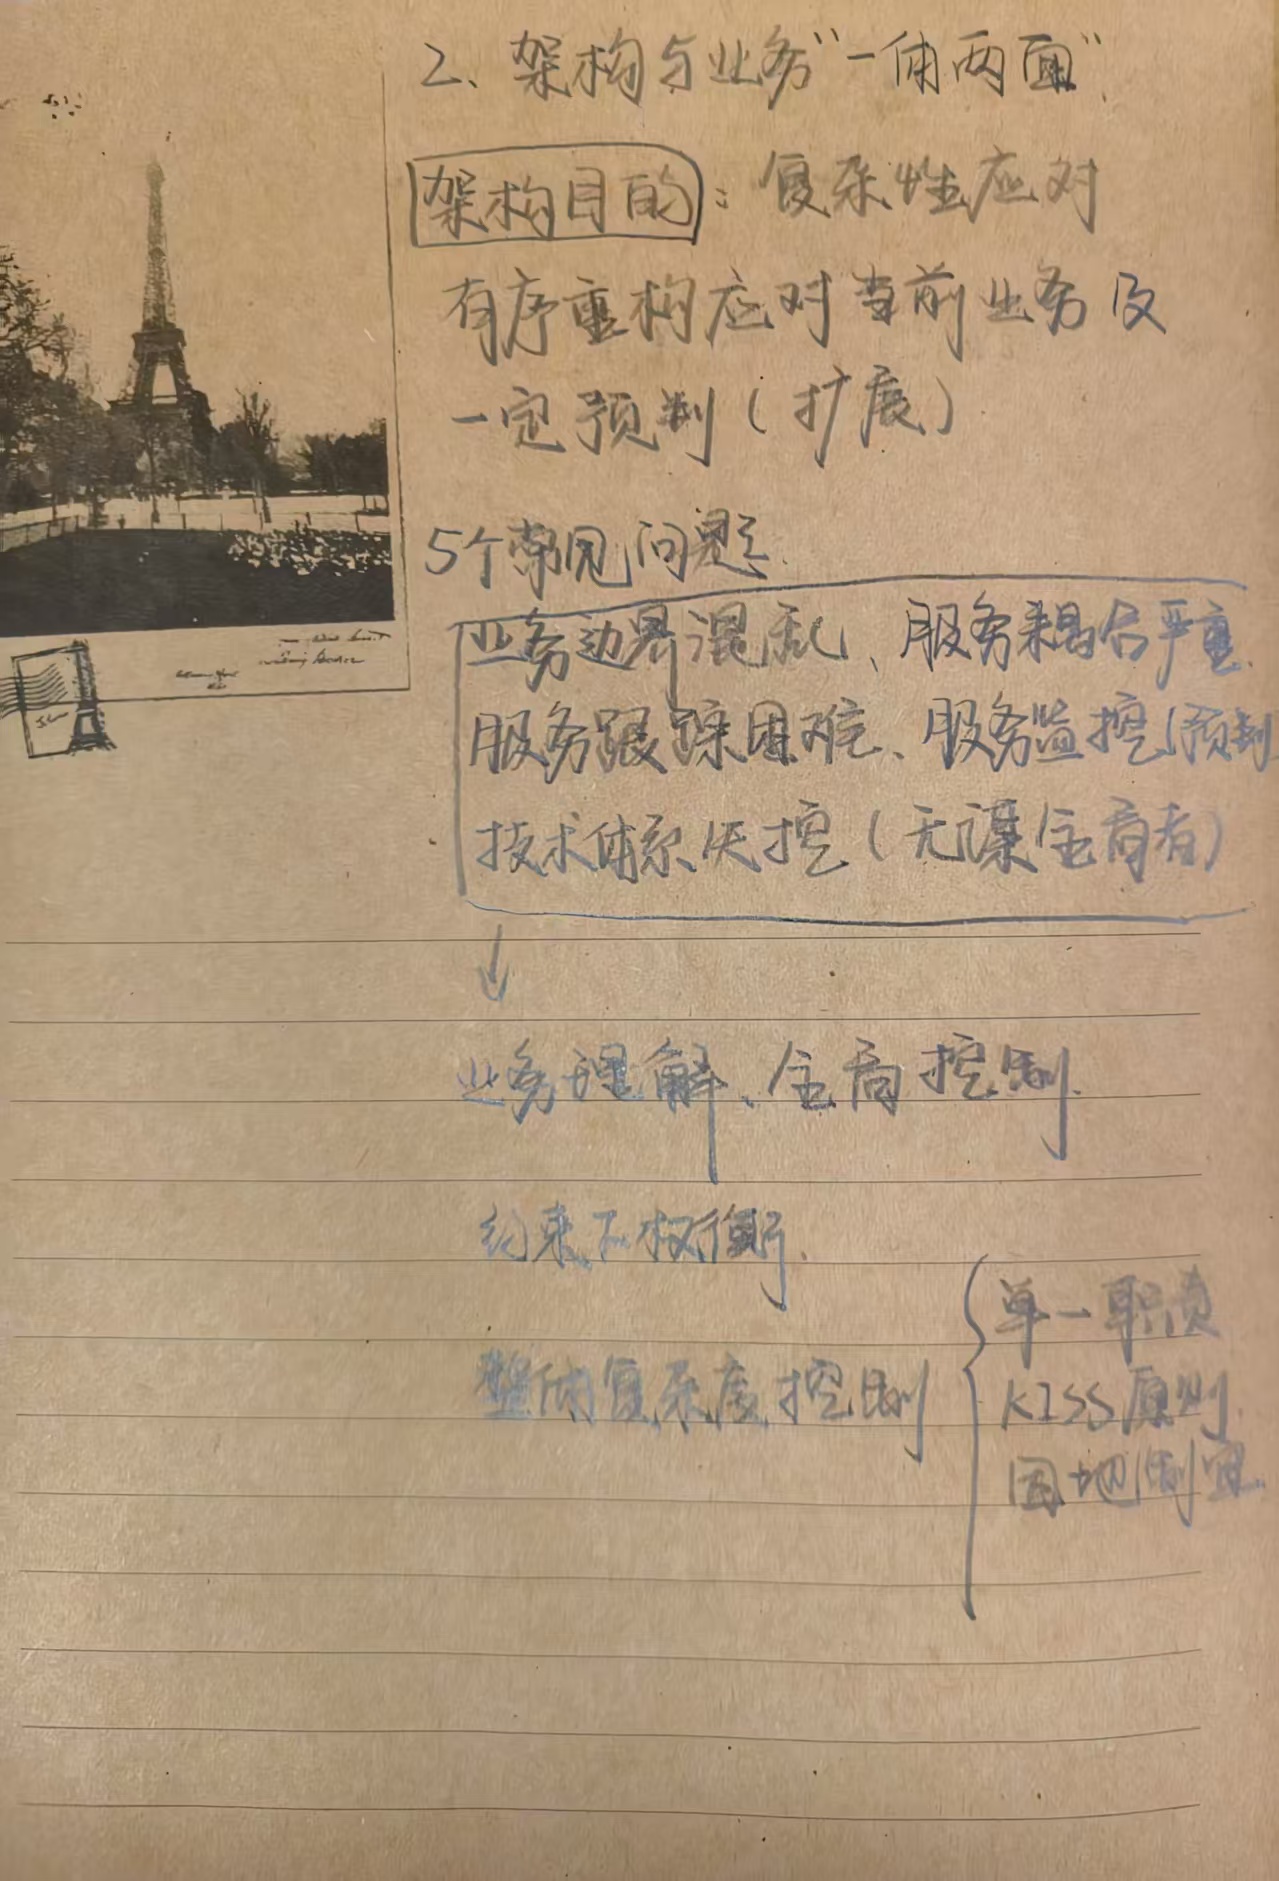 2、架构与业务“一体两面”
架构目的：复杂性应对
有序重构应对当前业务及
一定预判（扩展）
5个常见问题
业务边界混乱、服务耦合严重
服务跟踪困难、服务监控（预判
技术体系失控（无谋全局者）
↓
业务理解、全局控制
约束下权衡
整体复杂度控制
单一职责
KISS原则
因地制宜